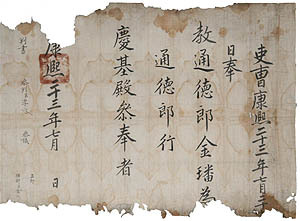 吏曹康熙二十三年七月二
日奉
教通德郎金璠為
通德郎行
慶基殿參奉者
康熙二十三年七月 日
判書